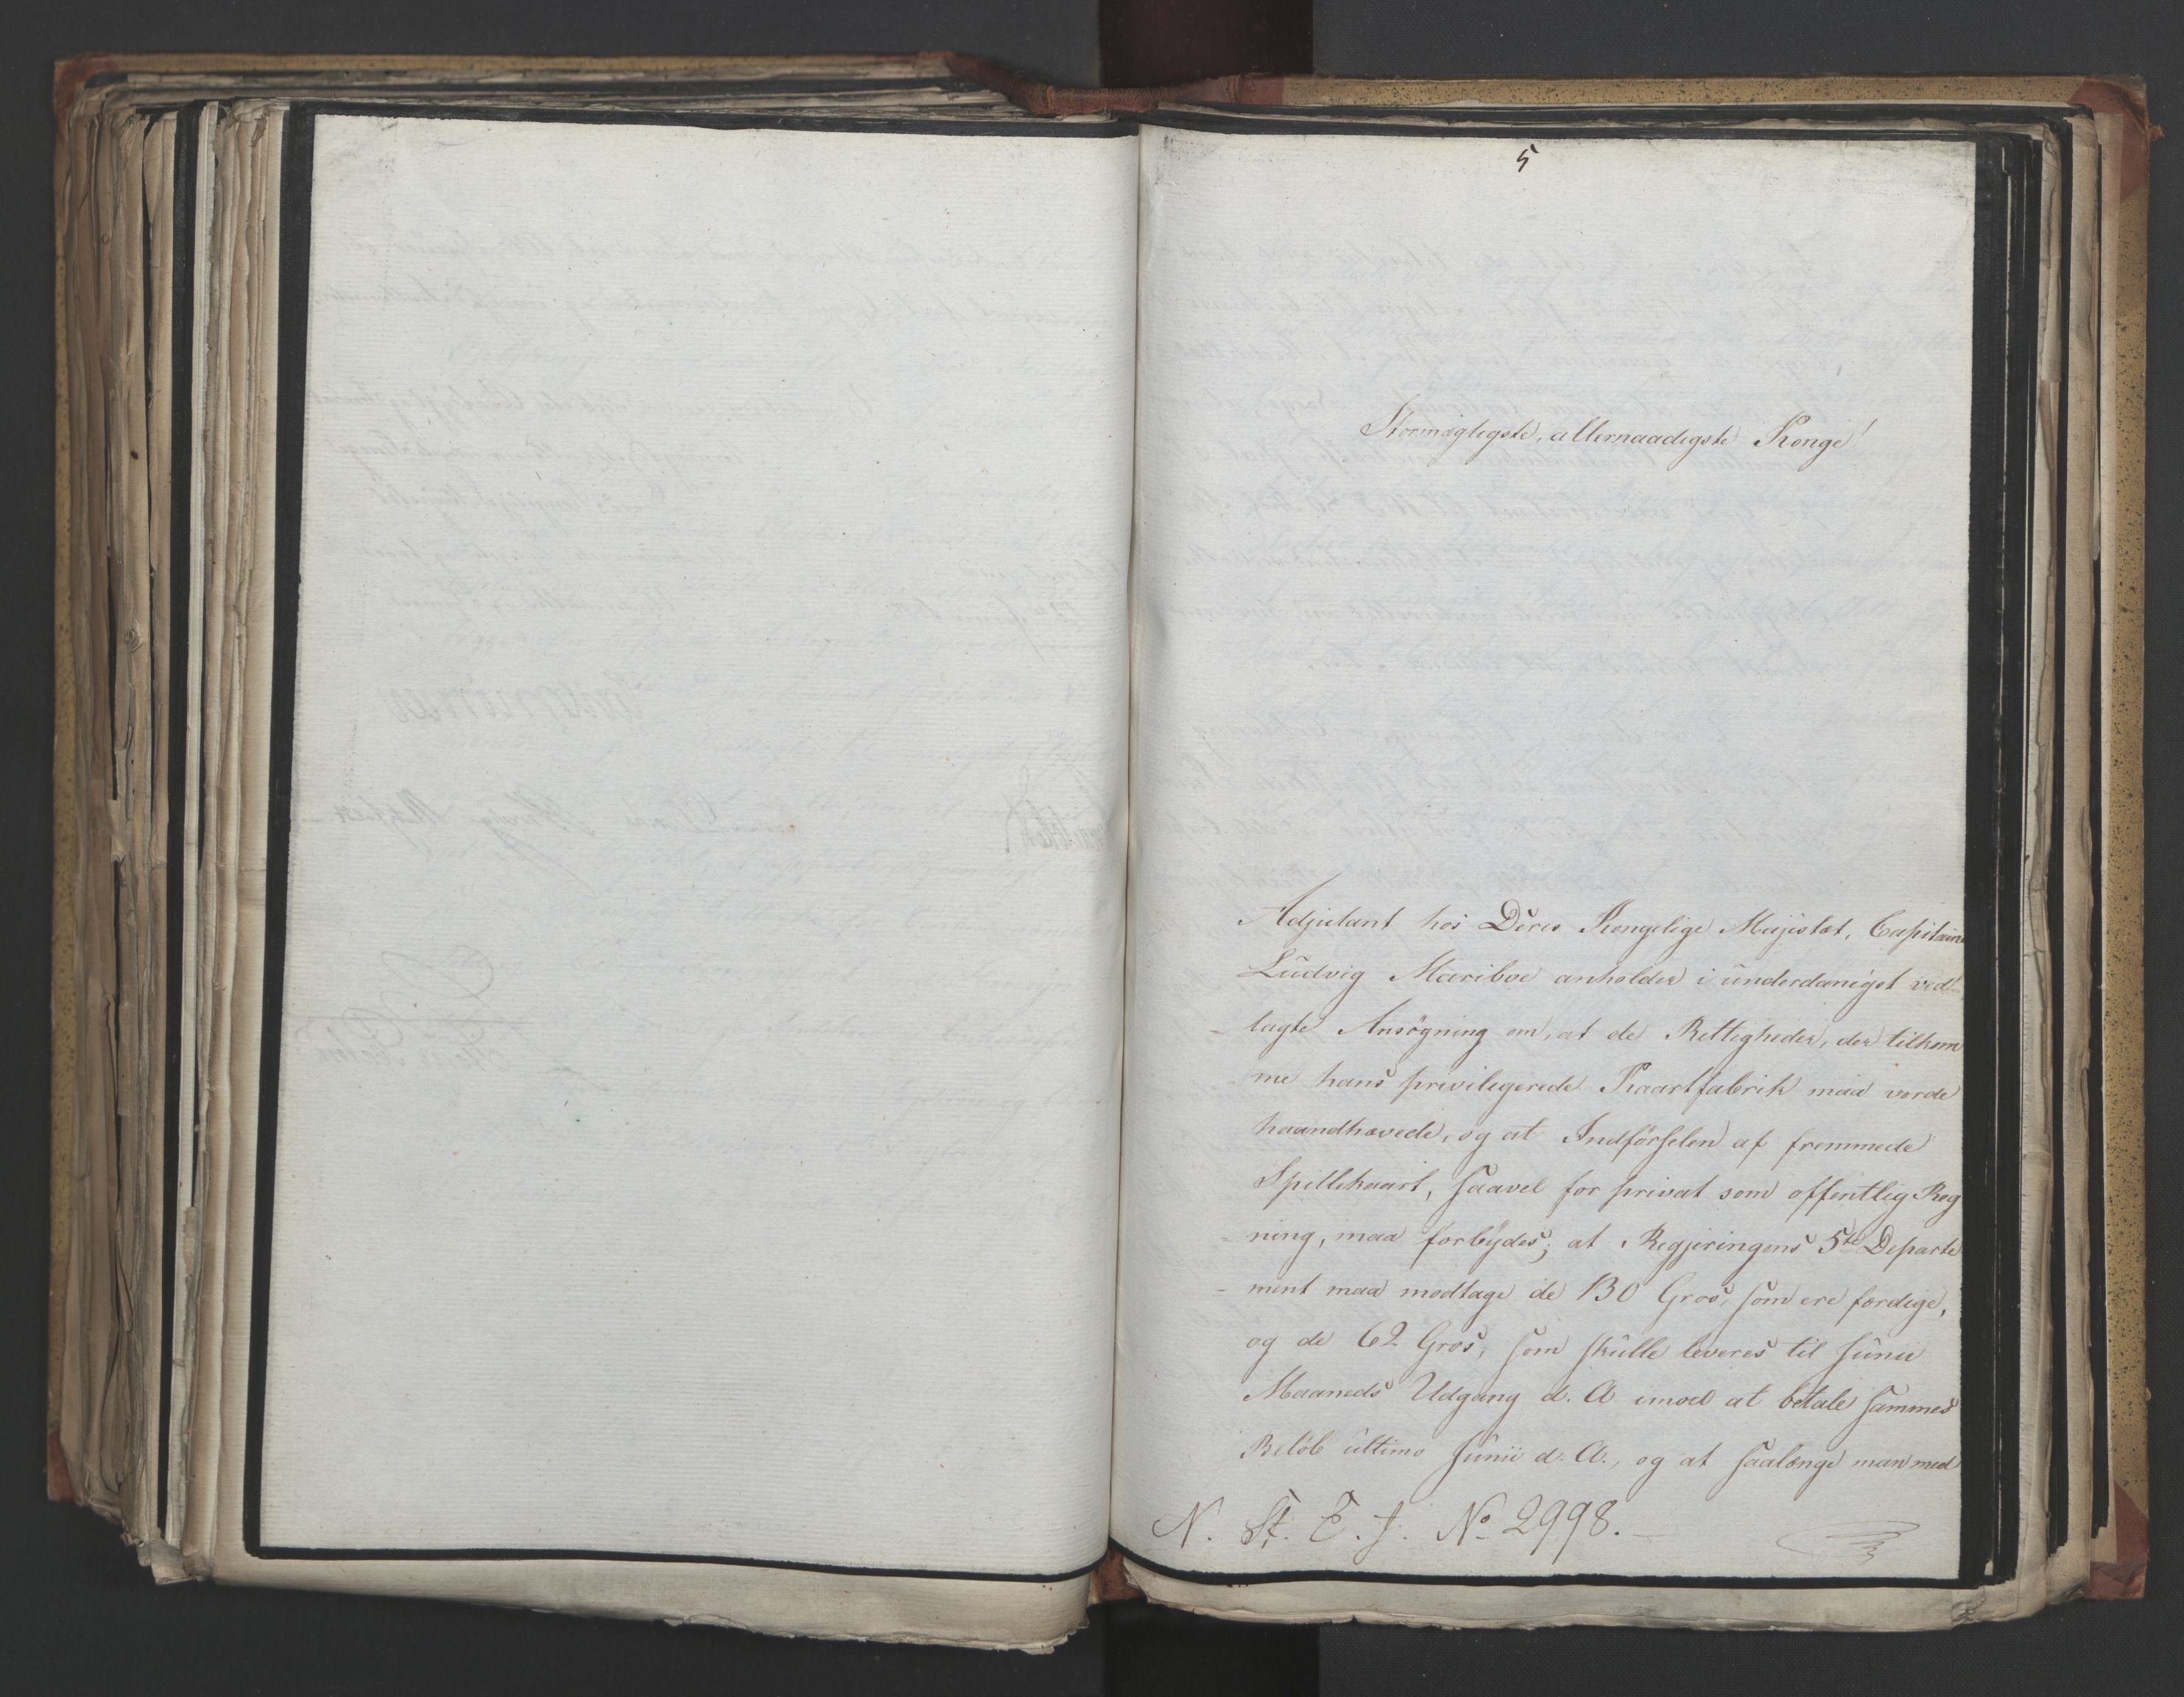 5
Stormægtigste, allernaadigste Konge!
Adjutant hos Deres Kongelige Majestæt, Capitain
Ludvig Mariboe anholder i underdanigst ved-
lagte Ansøgning om, at de Rettigheder, der tilkom
me hans privilegerede Kaartfabrik maa vorde
haandhævede, og at Indførselen af fremmede
Spillekaart, saavel for privat som offentlig Reg
ning, maa forbydes; at Regjeringens 5te Departe
ment maa modtage de 130 Gros, som ere færdige,
og de 62 Gros, som skulle leveres til Junii
Maaneds Udgang d. A. imod at betale sammes
Beløb ultimo Junii d. A., og at saalænge man med
N. St. E. J. No 2998.